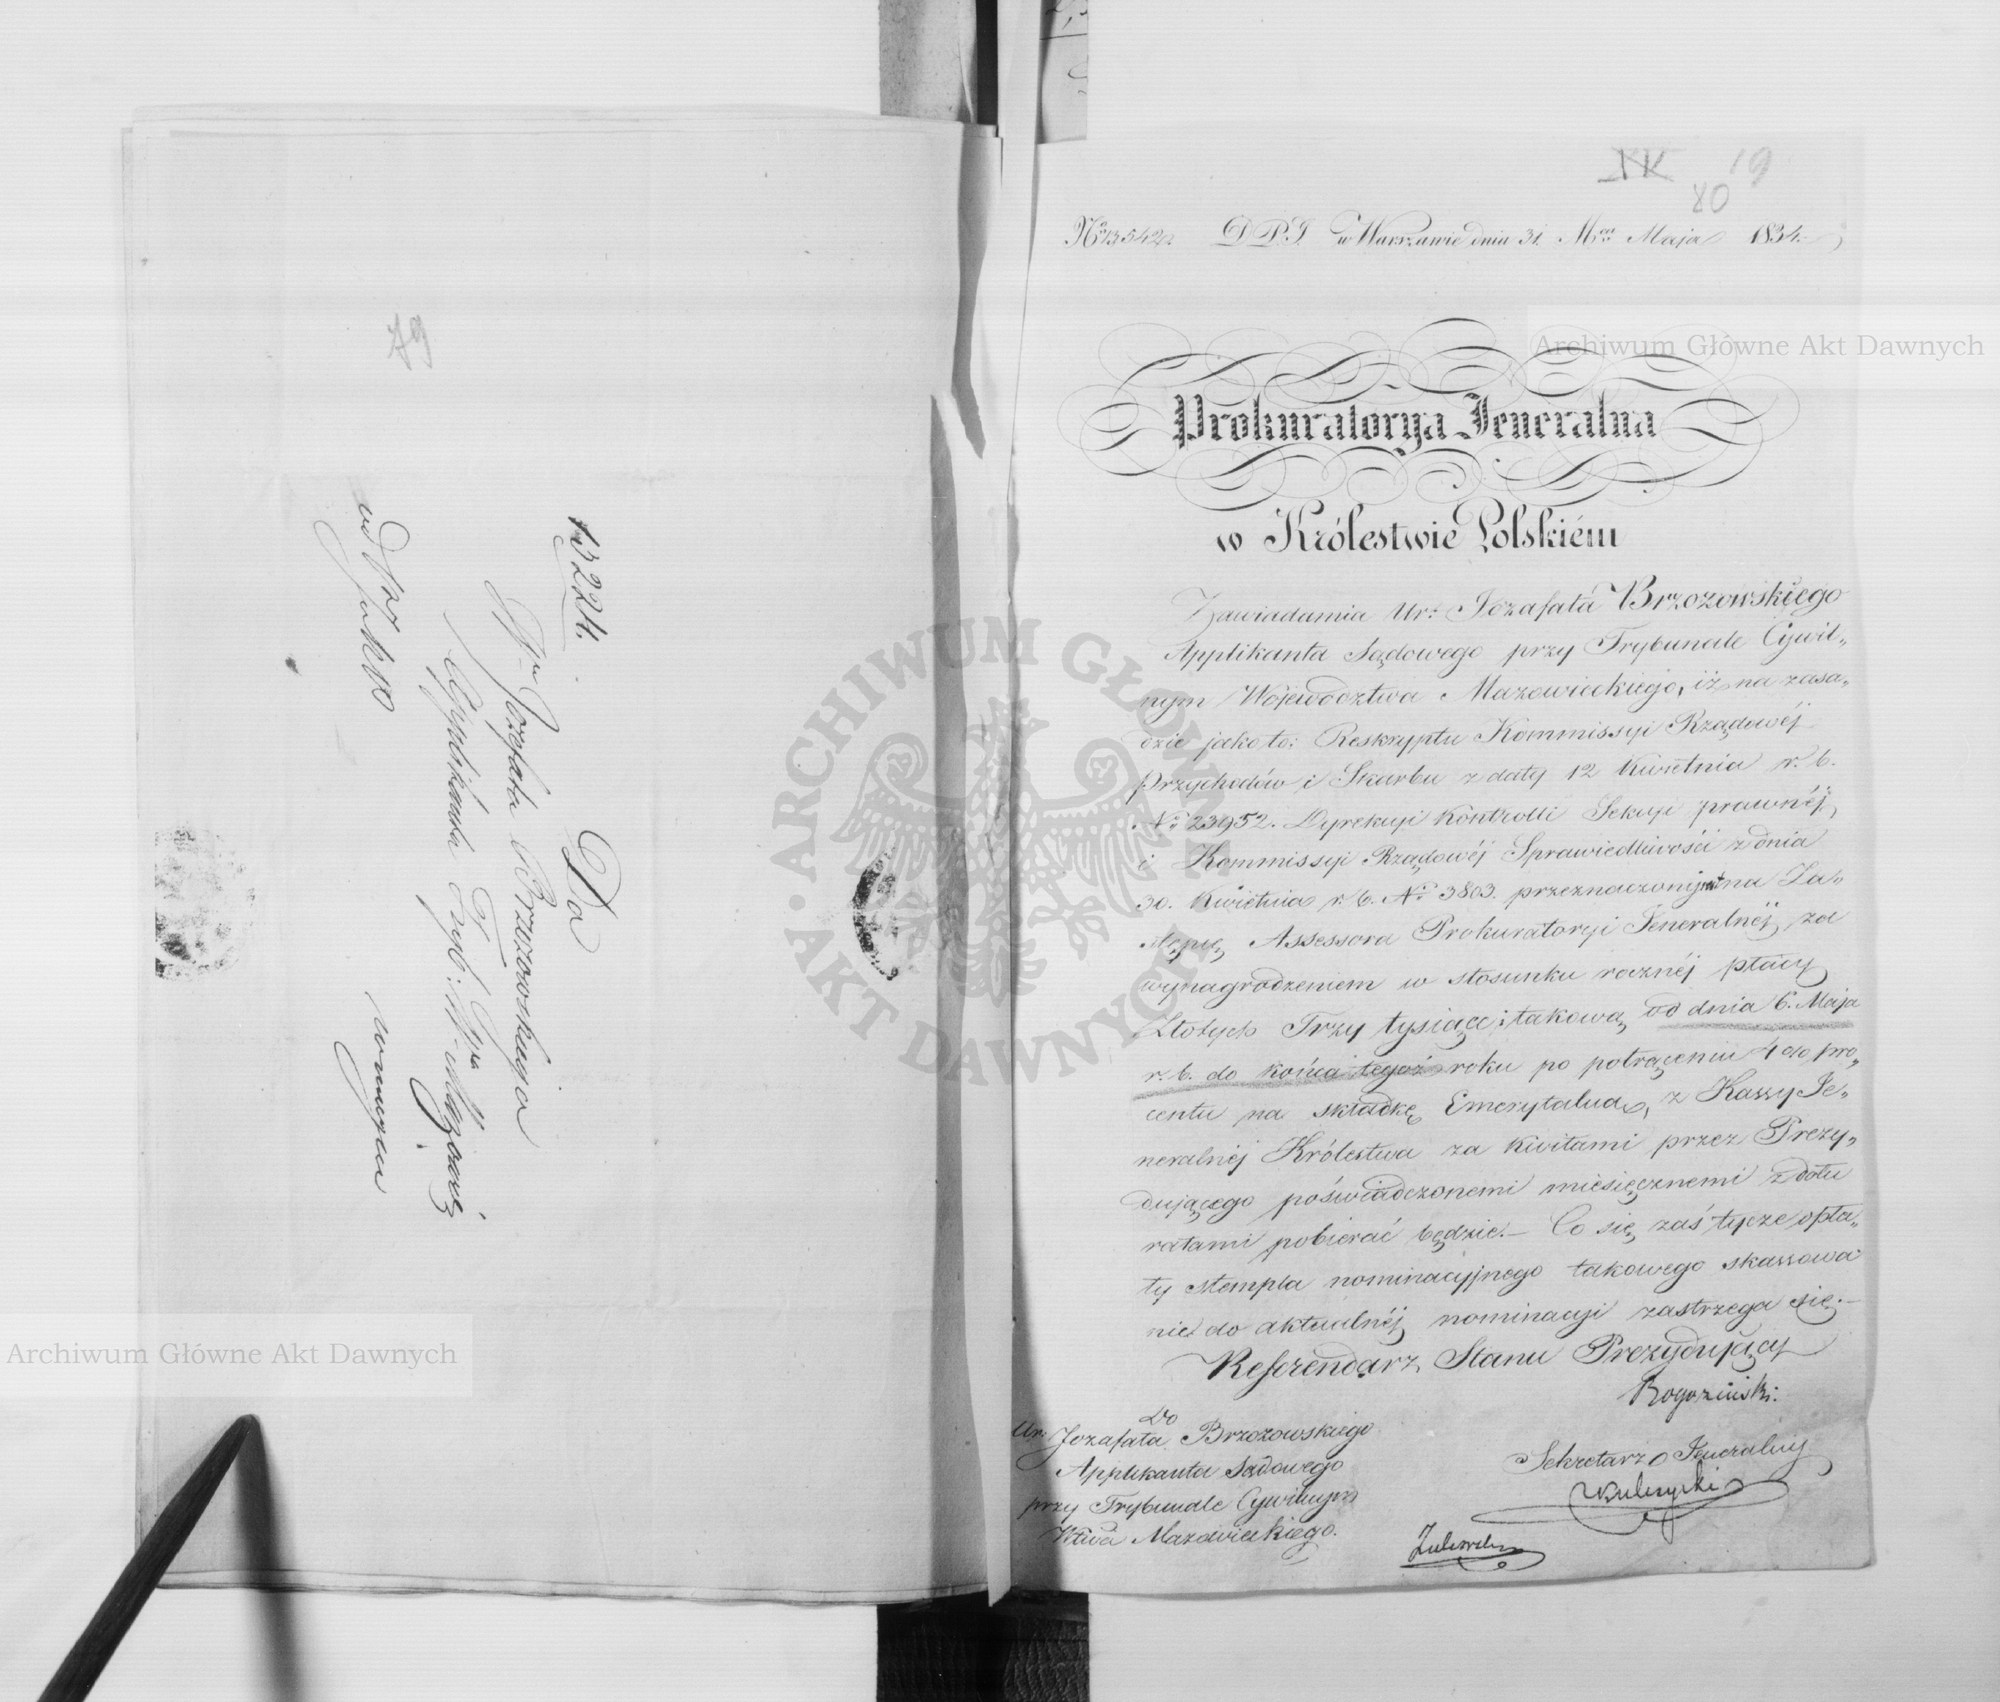 79
13224.
Da
Wn Jozefata Brzozowskiego
Applikanta Tryb: Cyw: Mazow:
19
80
No 13542 D.P.J. w Warszawie dnia 31. Mca Maja 1834.
Prokuratorya Jeneralna
w Królestwie Polskiém
Zawiadamia Ur: Jozafata Brzozowskiego
Applikanta Sądowego przy Trybunale Cywil„
nym Województwa Mazowieckiego, iż na zasa„
dzie jako to: Reskryptu Kommissyi Rządowéj
Przychodów i Skarbu z daty 12 Kwietnia r. b.
No 23952. Dyrekcyi Kontrolli Sekcyi prawnéj,
i Kommissyi Rządowéj Sprawiedliwości z dnia
30. Kwietnia r. b. No 3803. przeznaczony jest na Za„
stępcę Assessora Prokuratoryi Jeneralnéj, za
wynagrodzeniem w stosunku rocznéj płacy
Złotych Trzy tysiące; takową od dnia 6. Maja
r. b. do końca tegoż roku po potrąceniu 4 do pro„
centu na składkę Emerytalną, z Kassy Je„
neralnéj Królestwa za kwitami przez Prezy„
dującego poświadczonemi miesięcznemi z dołu
ratami pobierać będzie.— Co się zaś tycze opła„
ty stempla nominacyjnego takowego skassowa
nie do aktualnéj nominacyi zastrzega się.—
Referendarz Stanu Prezydujący
Rogoziński:
Do
Ur: Jozafata Brzozowskiego
Applikanta Sądowego
przy Trybunale Cywilnym
Wtwa Mazowieckiego.
Sekretarz Jeneralny
Kulczycki
Archiwum Główne Akt Dawnych
Archiwum Główne Akt Dawnych
ARCHIWUM GŁÓWNE AKT DAWNYCH